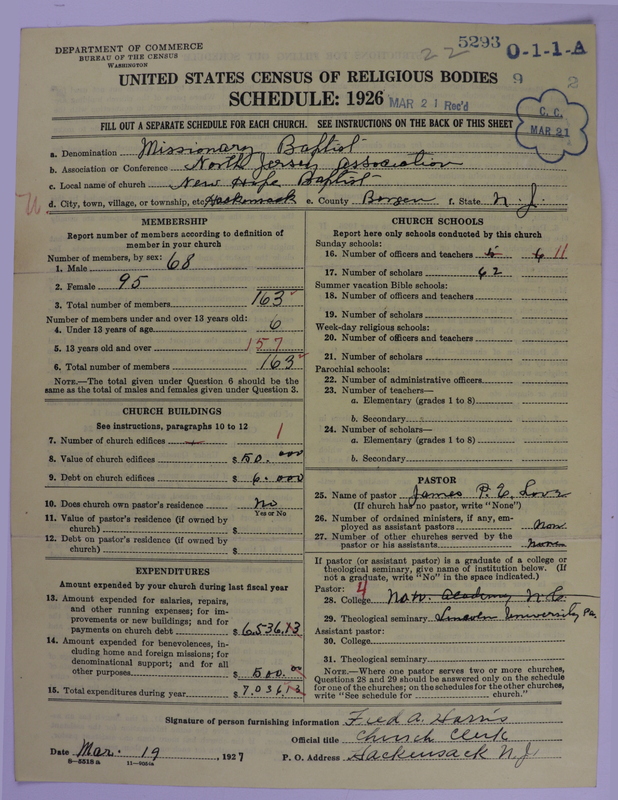 DEPARTMENT OF COMMERCE
BUREAU OF THE CENSUS
WASHINGTON
22 5293 O-1-1-A
UNITED STATES CENSUS OF RELIGIOUS BODIES 9 2
SCHEDULE: 1926 MAR 21 Rec'd
C. C.
MAR 21
FILL OUT A SEPARATE SCHEDULE FOR EACH CHURCH. SEE INSTRUCTIONS ON THE BACK OF THIS SHEET
a. Denomination Missionary Baptist
b. Association or Conference North Jersey Association
c. Local name of church New Hope Baptist
d. City, town, village, or township, etc. Hackensack e. County Bergen f. State N. J.
MEMBERSHIP
Report number of members according to definition of
member in your church
Number of members, by sex:
1. Male 68
2. Female 95
3. Total number of members 163
Number of members under and over 13 years old:
4. Under 13 years of age 6
5. 13 years old and over 157
6. Total number of members 163
NOTE.—The total given under Question 6 should be the
same as the total of males and females given under Question 3.
CHURCH BUILDINGS
See instructions, paragraphs 10 to 12
7. Number of church edifices 1
8. Value of church edifices $ 50.000
9. Debt on church edifices $ 6.000
10. Does church own pastor's residence No
Yes or No
11. Value of pastor's residence (if owned by
church) $
12. Debt on pastor's residence (if owned by
church) $
EXPENDITURES
Amount expended by your church during last fiscal year
13. Amount expended for salaries, repairs,
and other running expenses; for im-
provements or new buildings; and for
payments on church debt $ 6,536.13
14. Amount expended for benevolences, in-
cluding home and foreign missions; for
denominational support; and for all
other purposes $ 500.00
15. Total expenditures during year $ 7,036.13
CHURCH SCHOOLS
Report here only schools conducted by this church
Sunday schools:
16. Number of officers and teachers 5 6 11
17. Number of scholars 62
Summer vacation Bible schools:
18. Number of officers and teachers
19. Number of scholars
Week-day religious schools:
20. Number of officers and teachers
21. Number of scholars
Parochial schools:
22. Number of administrative officers
23. Number of teachers—
a. Elementary (grades 1 to 8)
b. Secondary
24. Number of scholars—
a. Elementary (grades 1 to 8)
b. Secondary
PASTOR
25. Name of pastor James P. E. Love
(If church has no pastor, write "None")
26. Number of ordained ministers, if any, em-
ployed as assistant pastors None
27. Number of other churches served by the
pastor or his assistants None
If pastor (or assistant pastor) is a graduate of a college or
theological seminary, give name of institution below. (If
not a graduate, write "No" in the space indicated.)
Pastor: 4
28. College Academy N. C.
29. Theological seminary Lincoln University Pa.
Assistant pastor:
30. College
31. Theological seminary
NOTE.—Where one pastor serves two or more churches,
Questions 28 and 29 should be answered only on the schedule
for one of the churches; on the schedules for the other churches,
write "See schedule for church."
Signature of person furnishing information Fred A. Harris
Official title Church Clerk
Date Mar. 19, 1927 P. O. Address Hackensack N. J.
8—5518 a